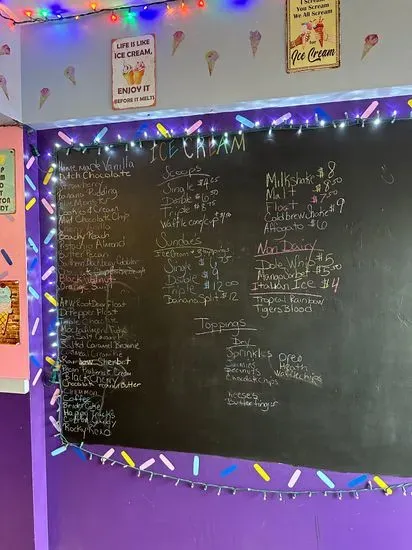 LIFE IS LIKE
ICE CREAM,
ENJOY IT
BEFORE IT MELTS
I Scream
You Scream
We All Scream
for
Ice Cream
ICE CREAM
Homemade Vanilla
Dutch Chocolate
Strawberry
Banana Pudding
Blue Monster
Cookies & Cream
Mint Chocolate Chip
Vanilla
Georgia Peach
Pistachio Almond
Butter Pecan
Southern Blackberry Cobbler
Black Walnut
A&W Root Beer Float
Dr Pepper Float
Sea Salt Caramel
Salted Caramel Brownie
Rainbow Sherbet
Black Cherry
Chocolate Peanut Butter
Coffee
Birthday Cake
Happy Tracks
Cotton Candy
Rocky Road
Scoops
Single $4
Double $6
Triple $8.75
Waffle cone/cup
Sundaes
Ice Cream + 3 toppings
Single $6.75
Double $9
Triple $12.00
Banana Split $12
Milkshake $8
Malt $8.50
Float $7.50
Cold brew Shake $9
Affogato $6
Non Dairy
Dole Whip $5
Mango Sorbet $5.50
Italian Ice $4
Tropical Rainbow
Tigers Blood
Toppings
Dry
Sprinkles
Oreo
Heath
Peanuts
Waffle chips
Chocolate Chips
Reeses
Butterfinger